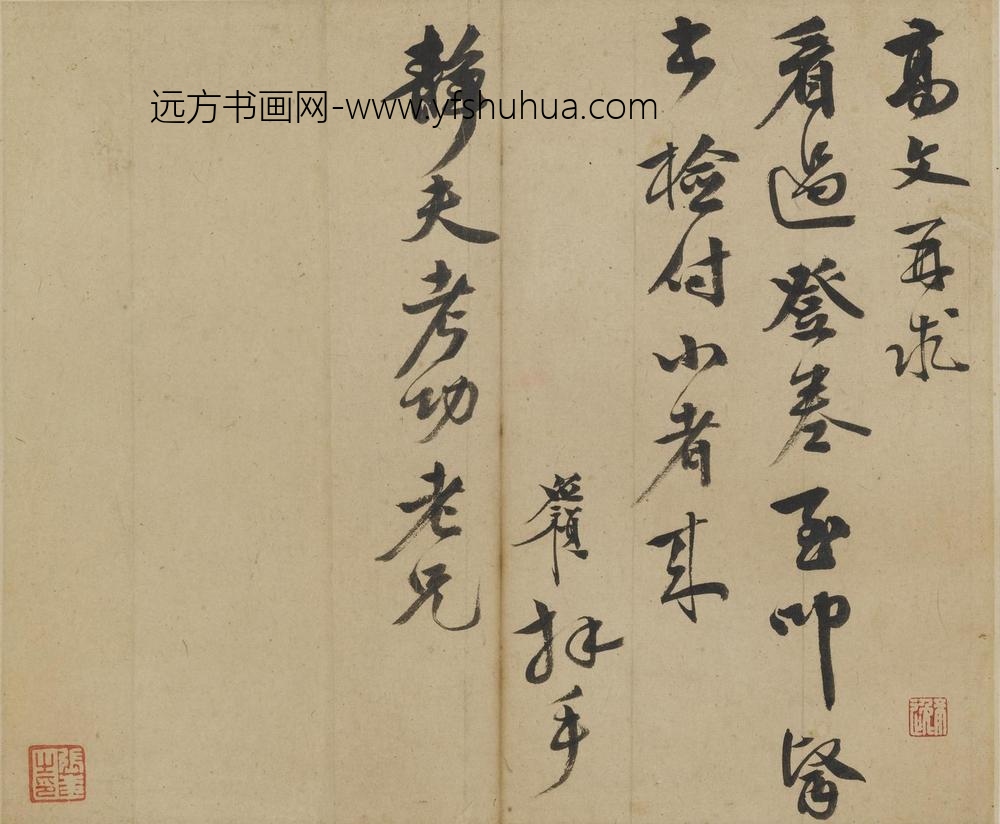 高文再求
看過登卷至叩
檢付小者來
拜手
靜夫考功老兄
远方书画网-www.yfshuhua.com